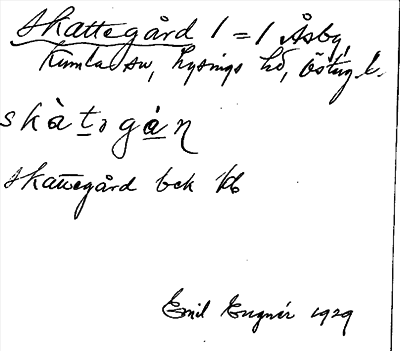 Skattegård 1 = 1 Åsby,
Kumla sn, Lysings hd, Östug l.
skàtogán
skattegård bek
Emil Eugnér 1929